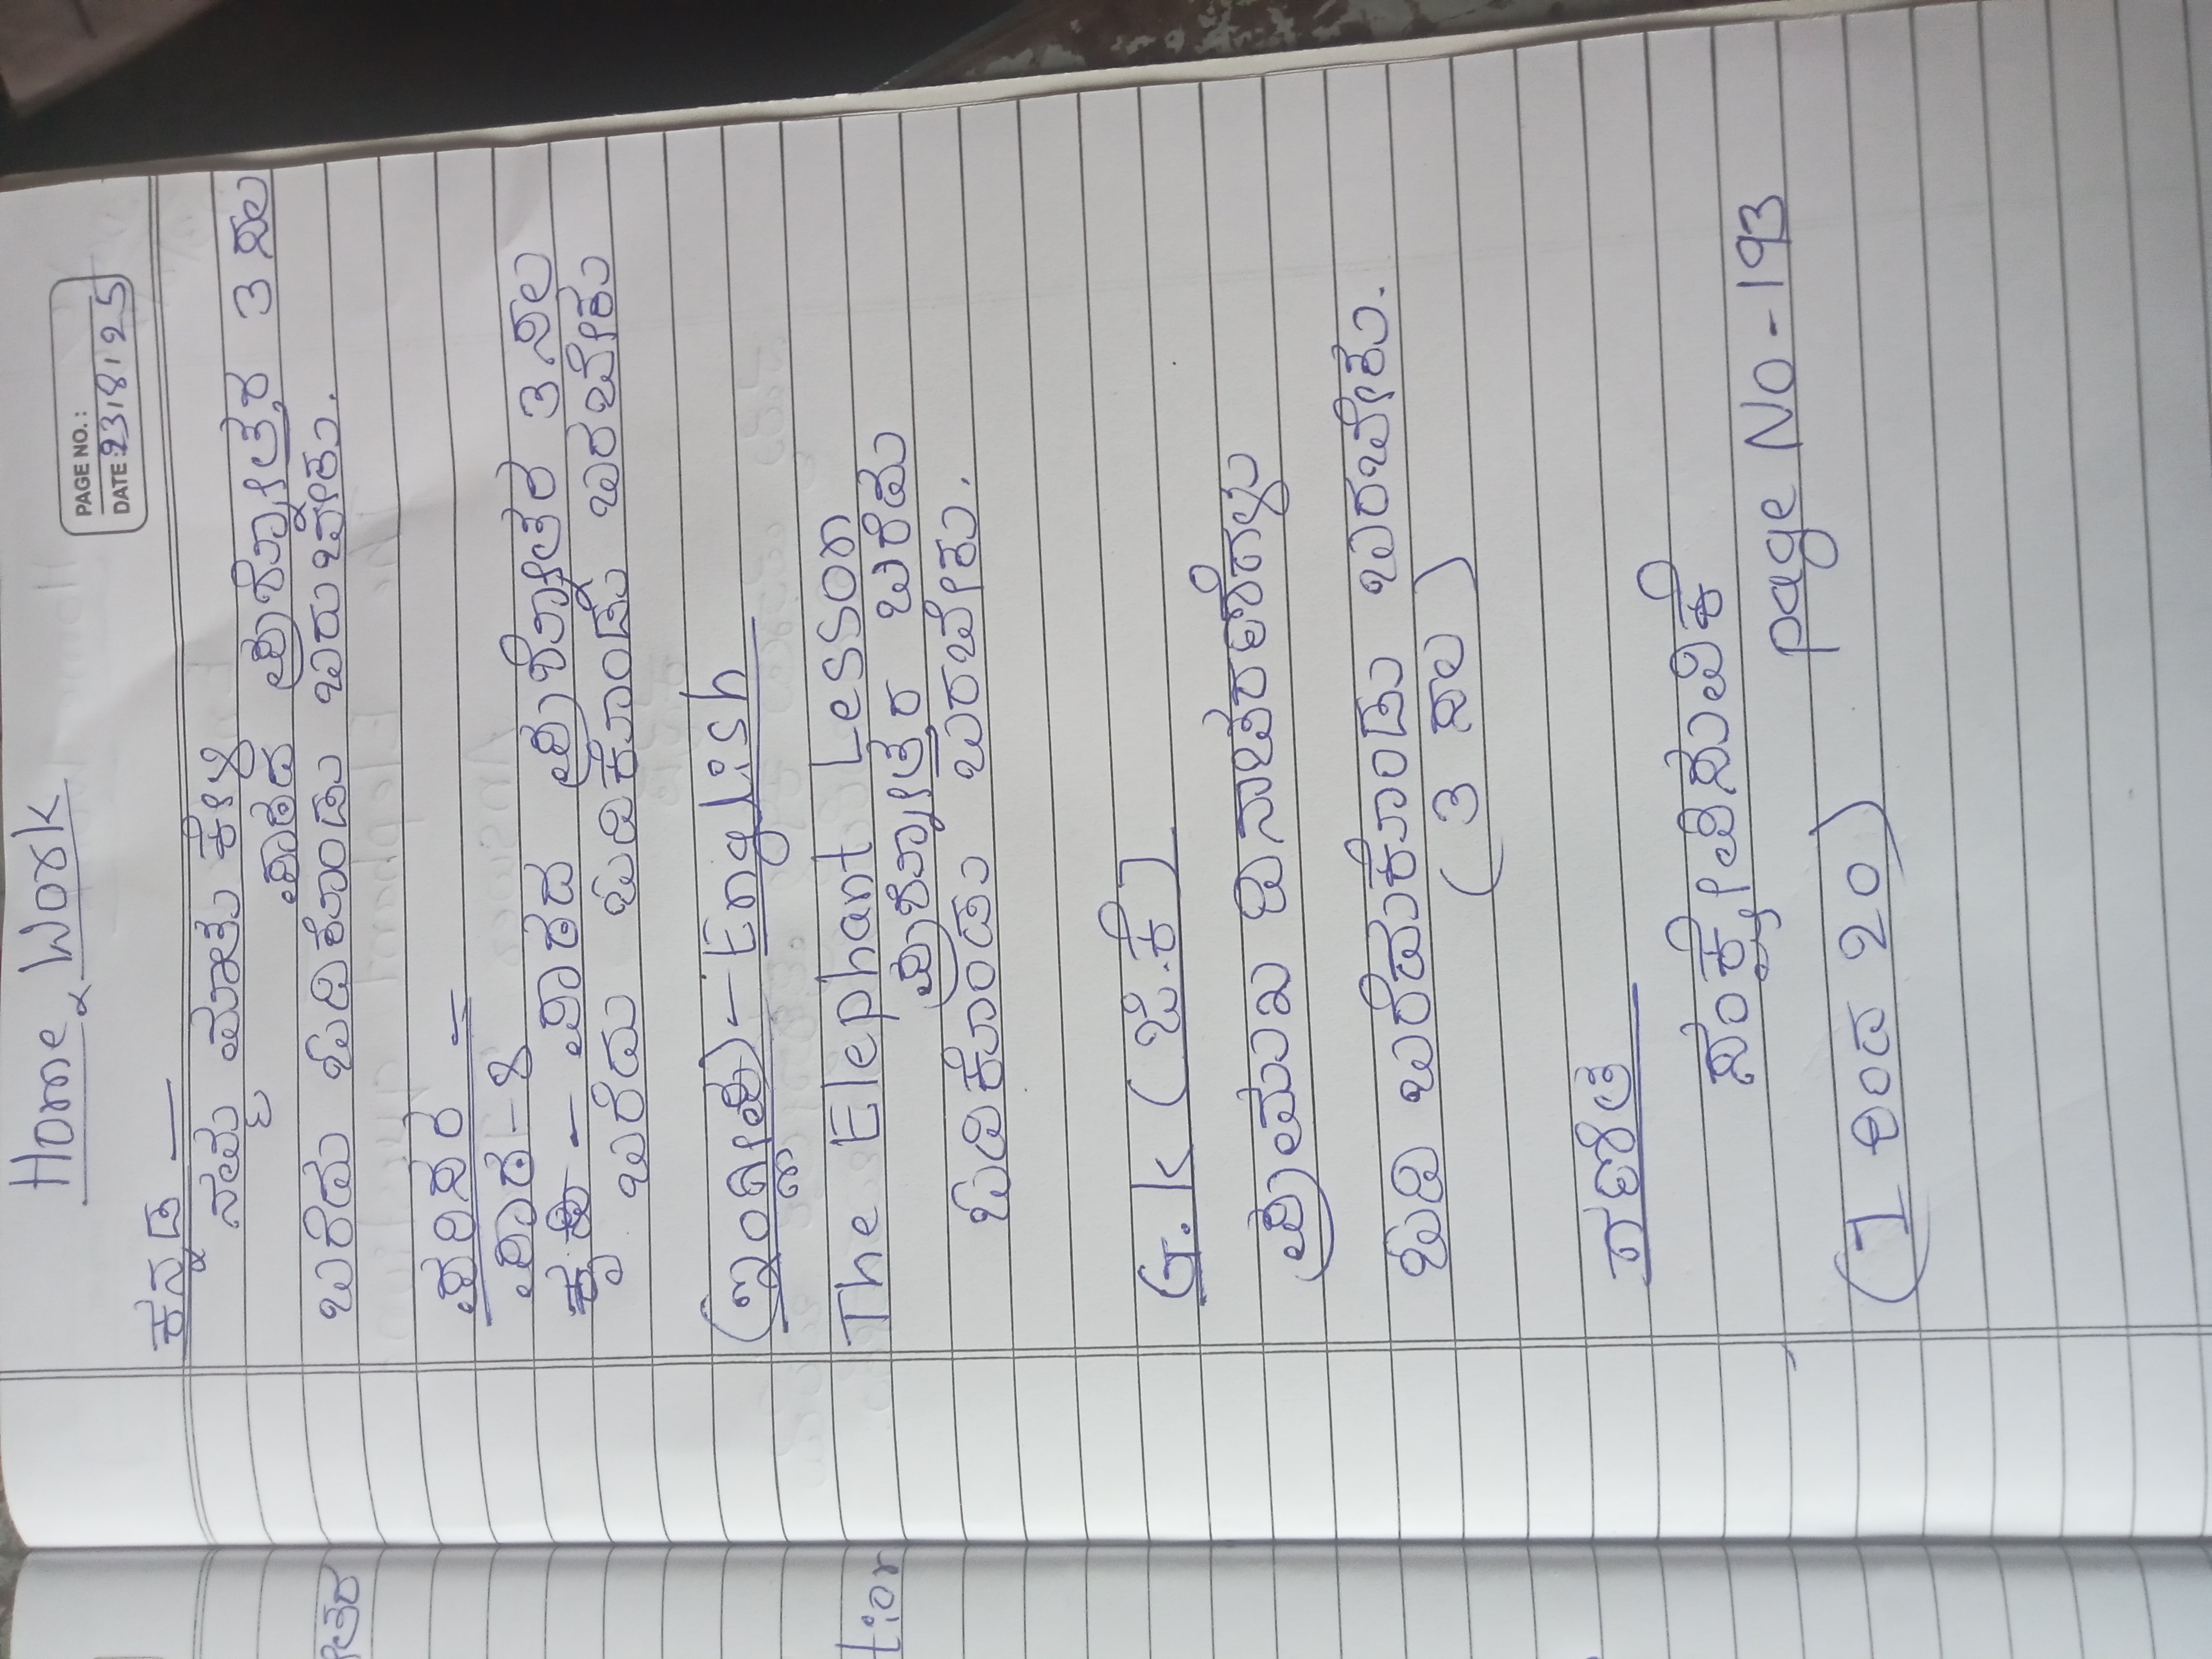 Home Work
PAGE NO.:
DATE: 23/8/25
ಕನ್ನಡ —
ನಮ್ಮ ಮಾತು ಕೇಳಿ
ಪಾಠದ ಪ್ರಶ್ನೋತ್ತರ 3 ಸಲ
ಬರೆದು ಓದಿಕೊಂಡು ಬರುಬೇಕು.
ಪರಿಸರ =
ಪಾಠ - 8
ಕೃಷಿ - ಪಾಠದ ಪ್ರಶ್ನೋತರ 3 ಸಲ
ಬರೆದು ಓದಿಕೊಂಡು ಬರಬೇಕು
(ಇಂಗ್ಲೀಷ) - English
The Elephant Lesson
ಪ್ರಶ್ನೋತ್ತರ ಬರೆದು
ಓದಿಕೊಂಡು ಬರಬೇಕು.
G.K (ಜಿ.ಕೆ)
ಪ್ರಮುಖ ದಿನಾಚರಣೆಗಳು
ಓದಿ ಬರೆದುಕೊಂಡು ಬರಬೇಕು.
(3 ಸಲ)
ಗಣಿತ
ಸಂಕ್ಷೇಪಿಸುವಿಕೆ
page No - 193
(1 ರಿಂದ 20)
ೋತ್ತರ
tion